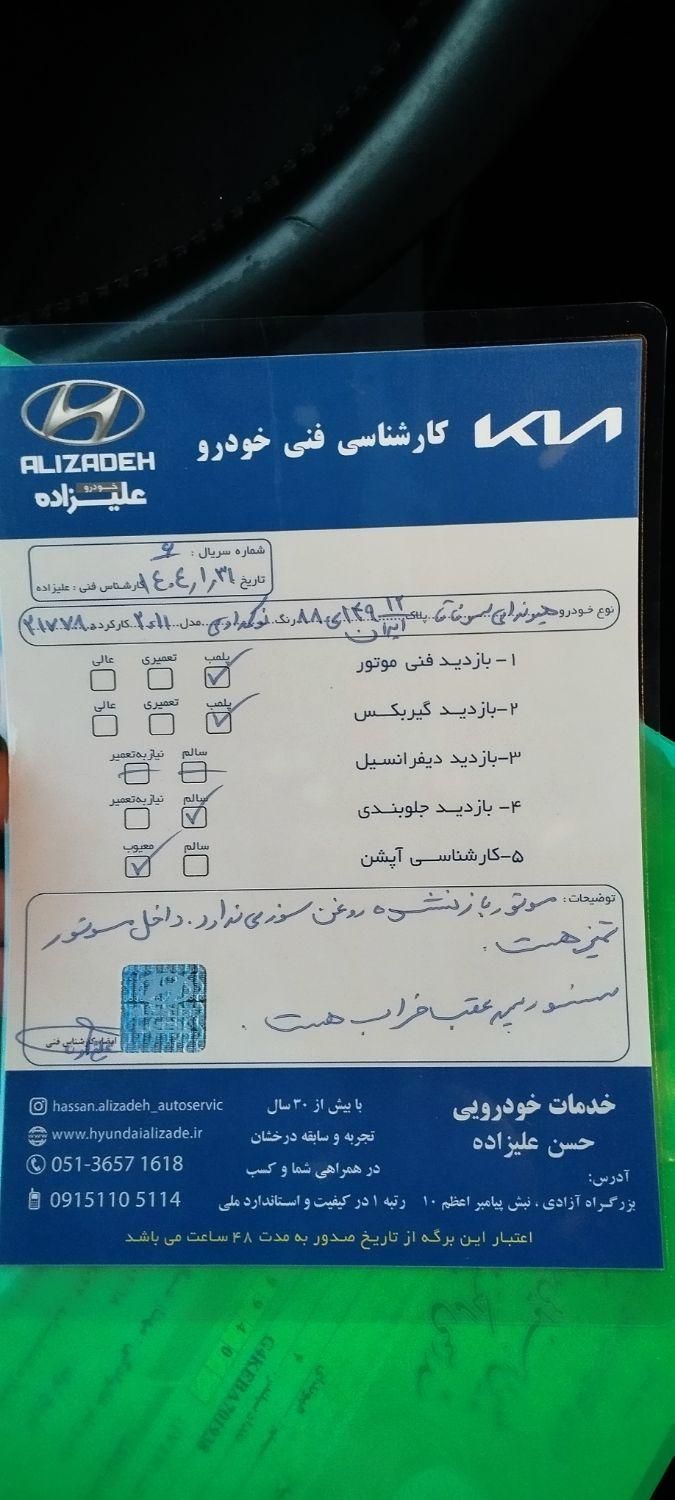 KIA
کارشناسی فنی خودرو
ALIZADEH
خودرو
علیزاده
شماره سریال : ۶
تاریخ ۱۴۰۴٫۱٫۳۱ کارشناس فنی : علیزاده
نوع خودرو هیوندای سوناتا پلاک ایران ۱۲ ۱۳۹ ی ۸۸ رنگ نوک مدادی مدل ۲۰۱۱ کارکرد
۱- بازدید فنی موتور پلمب تعمیری عالی
۲-بازدید گیربکس پلمب تعمیری عالی
۳-بازدید دیفرانسیل سالم نیاز به تعمیر
۴- بازدید جلوبندی سالم نیاز به تعمیر
۵-کارشناسی آپشن سالم معیوب
توضیحات: موتور باز نشده روغن سوزی ندارد. داخل موتور
تمیز هست.
سنسور عقب خراب هست.
امضاء کارشناس فنی
خدمات خودرویی
حسن علیزاده
با بیش از ۳۰ سال
تجربه و سابقه درخشان
در همراهی شما و کسب
رتبه ۱ در کیفیت و استاندارد ملی
hassan.alizadeh_autoservic
www.hyundaializade.ir
051-3657 1618
0915110 5114
آدرس:
بزرگراه آزادی ، نبش پیامبر اعظم ۱۰
اعتبار این برگه از تاریخ صدور به مدت ۴۸ ساعت می باشد